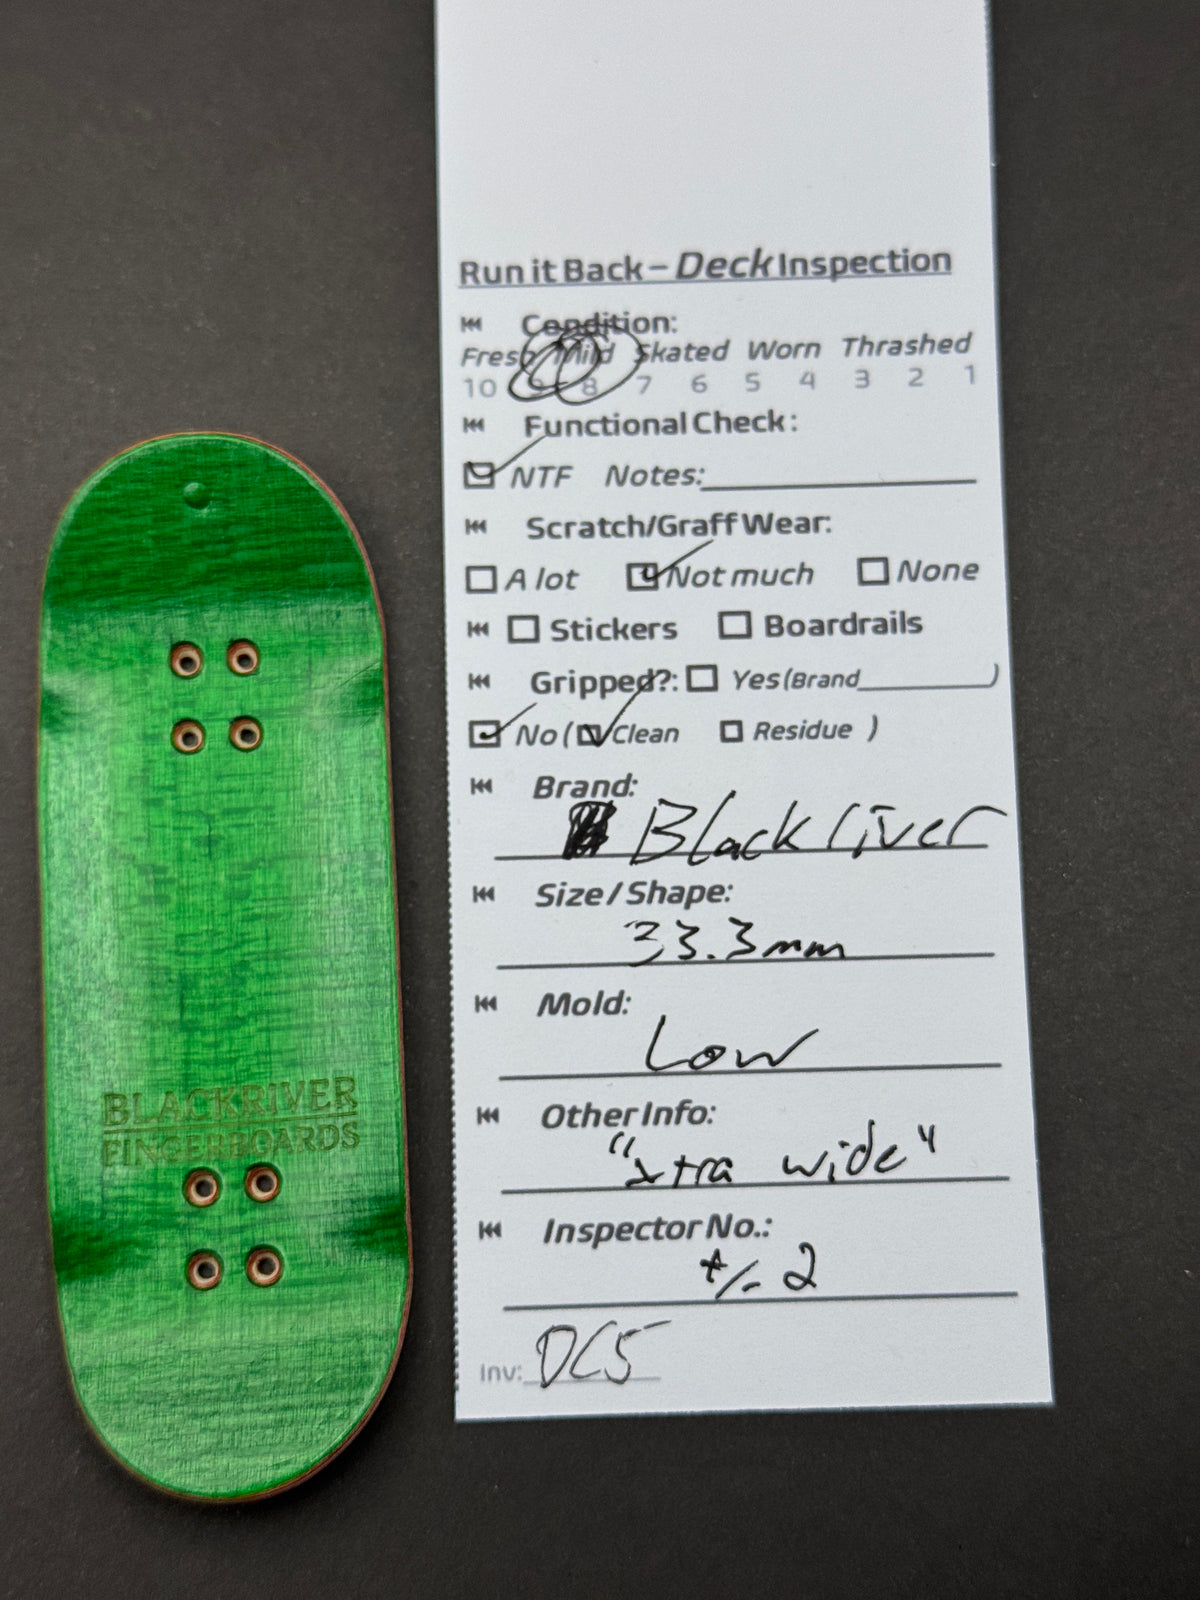 Run it Back – Deck Inspection
Condition:
Fresh Mild Skated Worn Thrashed
10 9 8 7 6 5 4 3 2 1
Functional Check:
NTF Notes:
Scratch/Graff Wear:
A lot Not much None
Stickers Boardrails
Gripped?: Yes (Brand )
No ( Clean Residue )
Brand:
Blackriver
Size / Shape:
33.3mm
Mold:
Low
Other Info:
"xtra wide"
Inspector No.:
+/- 2
Inv: DC5
BLACKRIVER
FINGERBOARDS